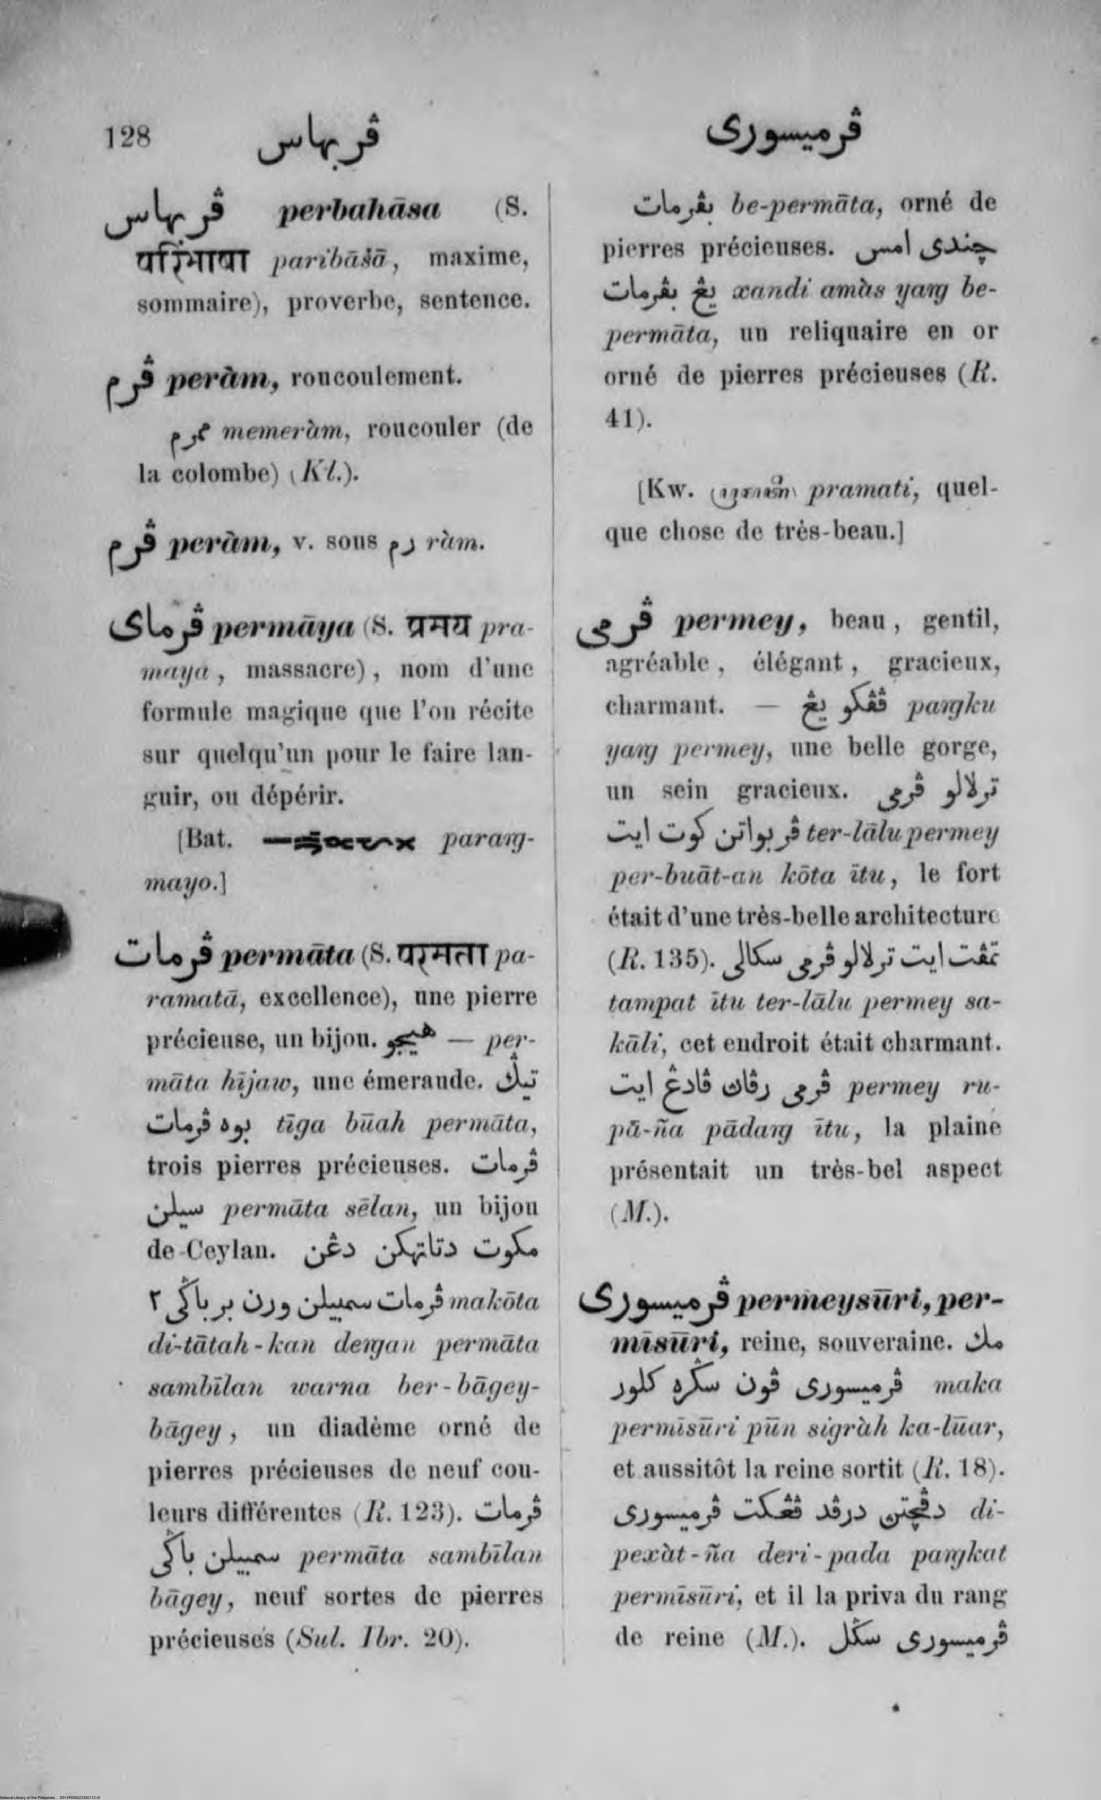 128 ڤربهاس
ڤرميسوري
ڤربهاس perbahāsa (S.
परिभाषा paribāśā, maxime,
sommaire), proverbe, sentence.
ڤرم peràm, roucoulement.
ممرم memeràm, roucouler (de
la colombe) (Kl.).
ڤرم peràm, v. sous رم ràm.
ڤرماي permāya (S. प्रमय pra-
maya, massacre), nom d'une
formule magique que l'on récite
sur quelqu'un pour le faire lan-
guir, ou dépérir.
[Bat. parang-
mayo.]
ڤرمات permāta (S. परमता pa-
ramatā, excellence), une pierre
précieuse, un bijou. هيجو — per-
māta hījaw, une émeraude. تيݢ
بوه ڤرمات tīga būah permāta,
trois pierres précieuses. ڤرمات
سيلن permāta sēlan, un bijou
de Ceylan. مكوت دتاتهكن دڠن
ڤرمات سمبيلن ورن برباݢي ٢ makōta
di-tātah-kan deŋgan permāta
sambīlan warna ber-bāgey-
bāgey, un diadème orné de
pierres précieuses de neuf cou-
leurs différentes (R. 123). ڤرمات
سمبيلن باݢي permāta sambīlan
bāgey, neuf sortes de pierres
précieuses (Sul. Ibr. 20).
بڤرمات be-permāta, orné de
pierres précieuses. چندي امس
يڠ بڤرمات xandi amàs yaŋg be-
permāta, un reliquaire en or
orné de pierres précieuses (R.
41).
[Kw. pramati, quel-
que chose de très-beau.]
ڤرمي permey, beau, gentil,
agréable, élégant, gracieux,
charmant. — ڤڠكو يڠ paŋgku
yaŋg permey, une belle gorge,
un sein gracieux. ترلالو ڤرمي
ڤربواتن كوت ايت ter-lālu permey
per-buāt-an kōta ītu, le fort
était d'une très-belle architecture
(R. 135). تمڤت ايت ترلالو ڤرمي سكالي
tampat ītu ter-lālu permey sa-
kāli, cet endroit était charmant.
ڤرمي رڤاڽ ڤادڠ ايت permey ru-
pā-ña pādaŋg ītu, la plaine
présentait un très-bel aspect
(M.).
ڤرميسوري permeysūri, per-
mīsūri, reine, souveraine. مك
ڤرميسوري ڤون سݢره كلور maka
permīsūri pūn sigràh ka-lūar,
et aussitôt la reine sortit (R. 18).
دڤچتڽ درڤد ڤڠكت ڤرميسوري di-
pexàt-ña deri-pada paŋgkat
permīsūri, et il la priva du rang
de reine (M.). ڤرميسوري سݢل